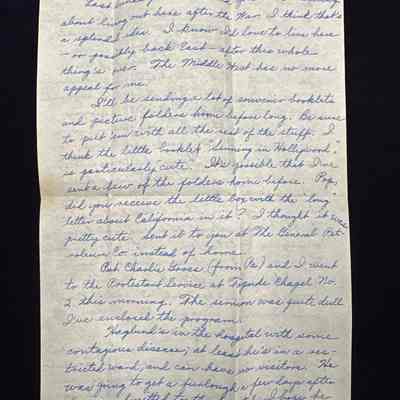 about living out here after the War. I think that's
a splendid idea. I know I'd love to live here
- or possibly back East - after this whole
thing's over. The Middle West has no more
appeal for me.
I'll be sending a lot of souvenir booklets
and picture folders home before long. Be sure
to put 'em with all the rest of the stuff. I
think the little booklet "Slumming in Hollywood,"
is particularly "cute". It's possible that I've
sent a few of the folders home before. Pop,
did you receive the little box with the "long"
letter about California in it? I thought it was
pretty cute. Sent it to you at The General Pet-
roleum Co. instead of home.
Charlie Goose (from Pa) and I went
to the Protestant Service at Chapel No.
2 this morning. The sermon was quite dull
I've enclosed the program.
Haglund's in the hospital with some
contagious disease; at least he's in a res-
tricted ward, and can have no visitors. He
was going to get a furlough a few days after
I hope he